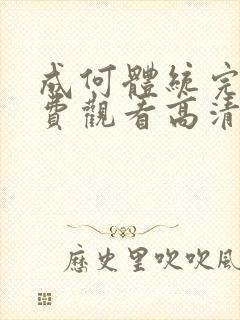 成何體統完
費觀看高清
歷史里吹吹風